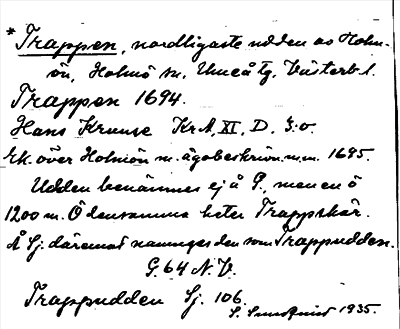 * Trappen, nordligaste udden av Holm-
ön, Holmö sn. Umeå tg. Västerb. l.
Trappen 1694.
Hans Kruuse KrA, XI, D. 3. o.
Ek. över Holmön m. ägobeskrivn. m.m. 1695.
Udden benämnes ej å G., men en ö
1200 m. Ö densamma heter Trappskär.
Å Sj. däremot namnges den som Trappudden.
G. 64 N. V.
Trappudden Sj. 106.
S. Sundquist 1935.